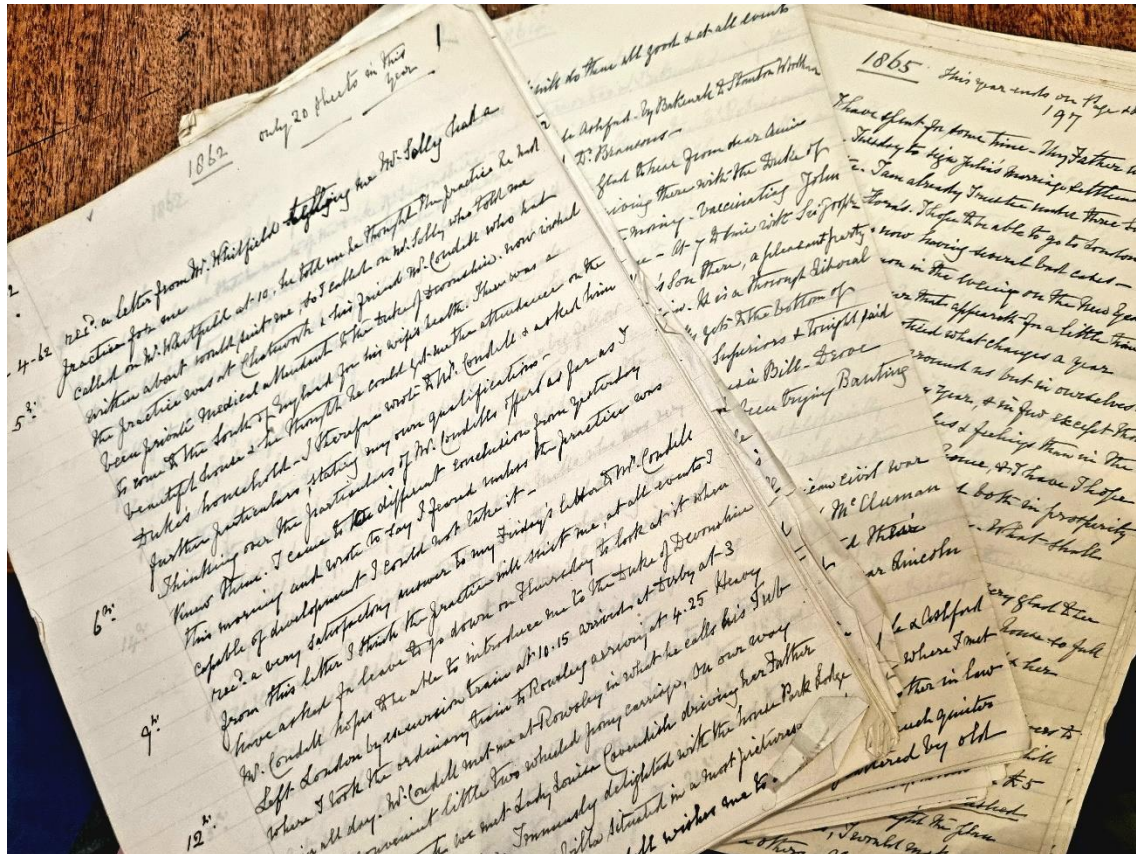 1
1862
only 20 sheets in this
year
recd. a letter from Mr. Whitfield telling me Mr. Solly had a
4-62
practice for me
called on Mr. Whitfield at 10, he told me he thought the practice he had
5th.
written about would suit me, so I called on Mr. Solly who told me
the practice was at Chatsworth & his friend Mr. Condell who had
been private medical attendant to the Duke of Devonshire now wished
to come to the South of England for his wife's health. There was a
beautiful house & he thought he could get me the attendance on the
Duke's household - I therefore wrote to Mr. Condell & asked him
further particulars, stating my own qualifications -
6th.
Thinking over the particulars of Mr. Condell's offer as far as I
knew them. I came to a different conclusion from yesterday
this morning and wrote to say I feared unless the practice was
capable of development I could not take it -
9th.
recd. a very satisfactory answer to my Friday's letter to Mr. Condell
from this letter I think the practice will suit me, at all events I
have asked for leave to go down on Thursday to look at it when
Mr. Condell hopes to be able to introduce me to the Duke of Devonshire
12th.
Left London by excursion train at 10.15 arrived at Derby at 3
where I took the ordinary train to Rowsley arriving at 4.25 Heavy
rain all day. Mr. Condell met me at Rowsley in what he calls his Tub
convenient little two wheeled pony carriage, on our way
we met Lady Louisa Cavendish driving her Father
Immensely delighted with the house Park Lodge
villa situated in a most pictures
wishes me to
will do them all good & at all events
Ashford - by Bakewell & Stanton Woodhouse
Dr. Bransons -
glad to hear from dear
driving there with the Duke of
morning - vaccinating John
- At 7 to dine with Sir Joseph
son there, a pleasant party
. He is a thorough Liberal
gets to the bottom of
Superiors & tonight said
Bill - Derove
been trying Banting
civil war
McCluman
d their
ar Lincoln
& Ashford
where I met
other in law
much quieter
by old
1865
This year ends on Page
197
I have spent for some time - My Father
Tuesday to sign Julia's marriage settlement
I am already Trustee under three
Flora's. I hope to be able to go to London
now having several bad cases -
on in the evening on the New Year
that appeareth for a little time
what changes a year
around us but in ourselves
year, & in few except the
& feelings than in the
come, & I have I hope
both in prosperity
- What shall
very glad to see
house to full
& her
to
& 5
the plan
, I would